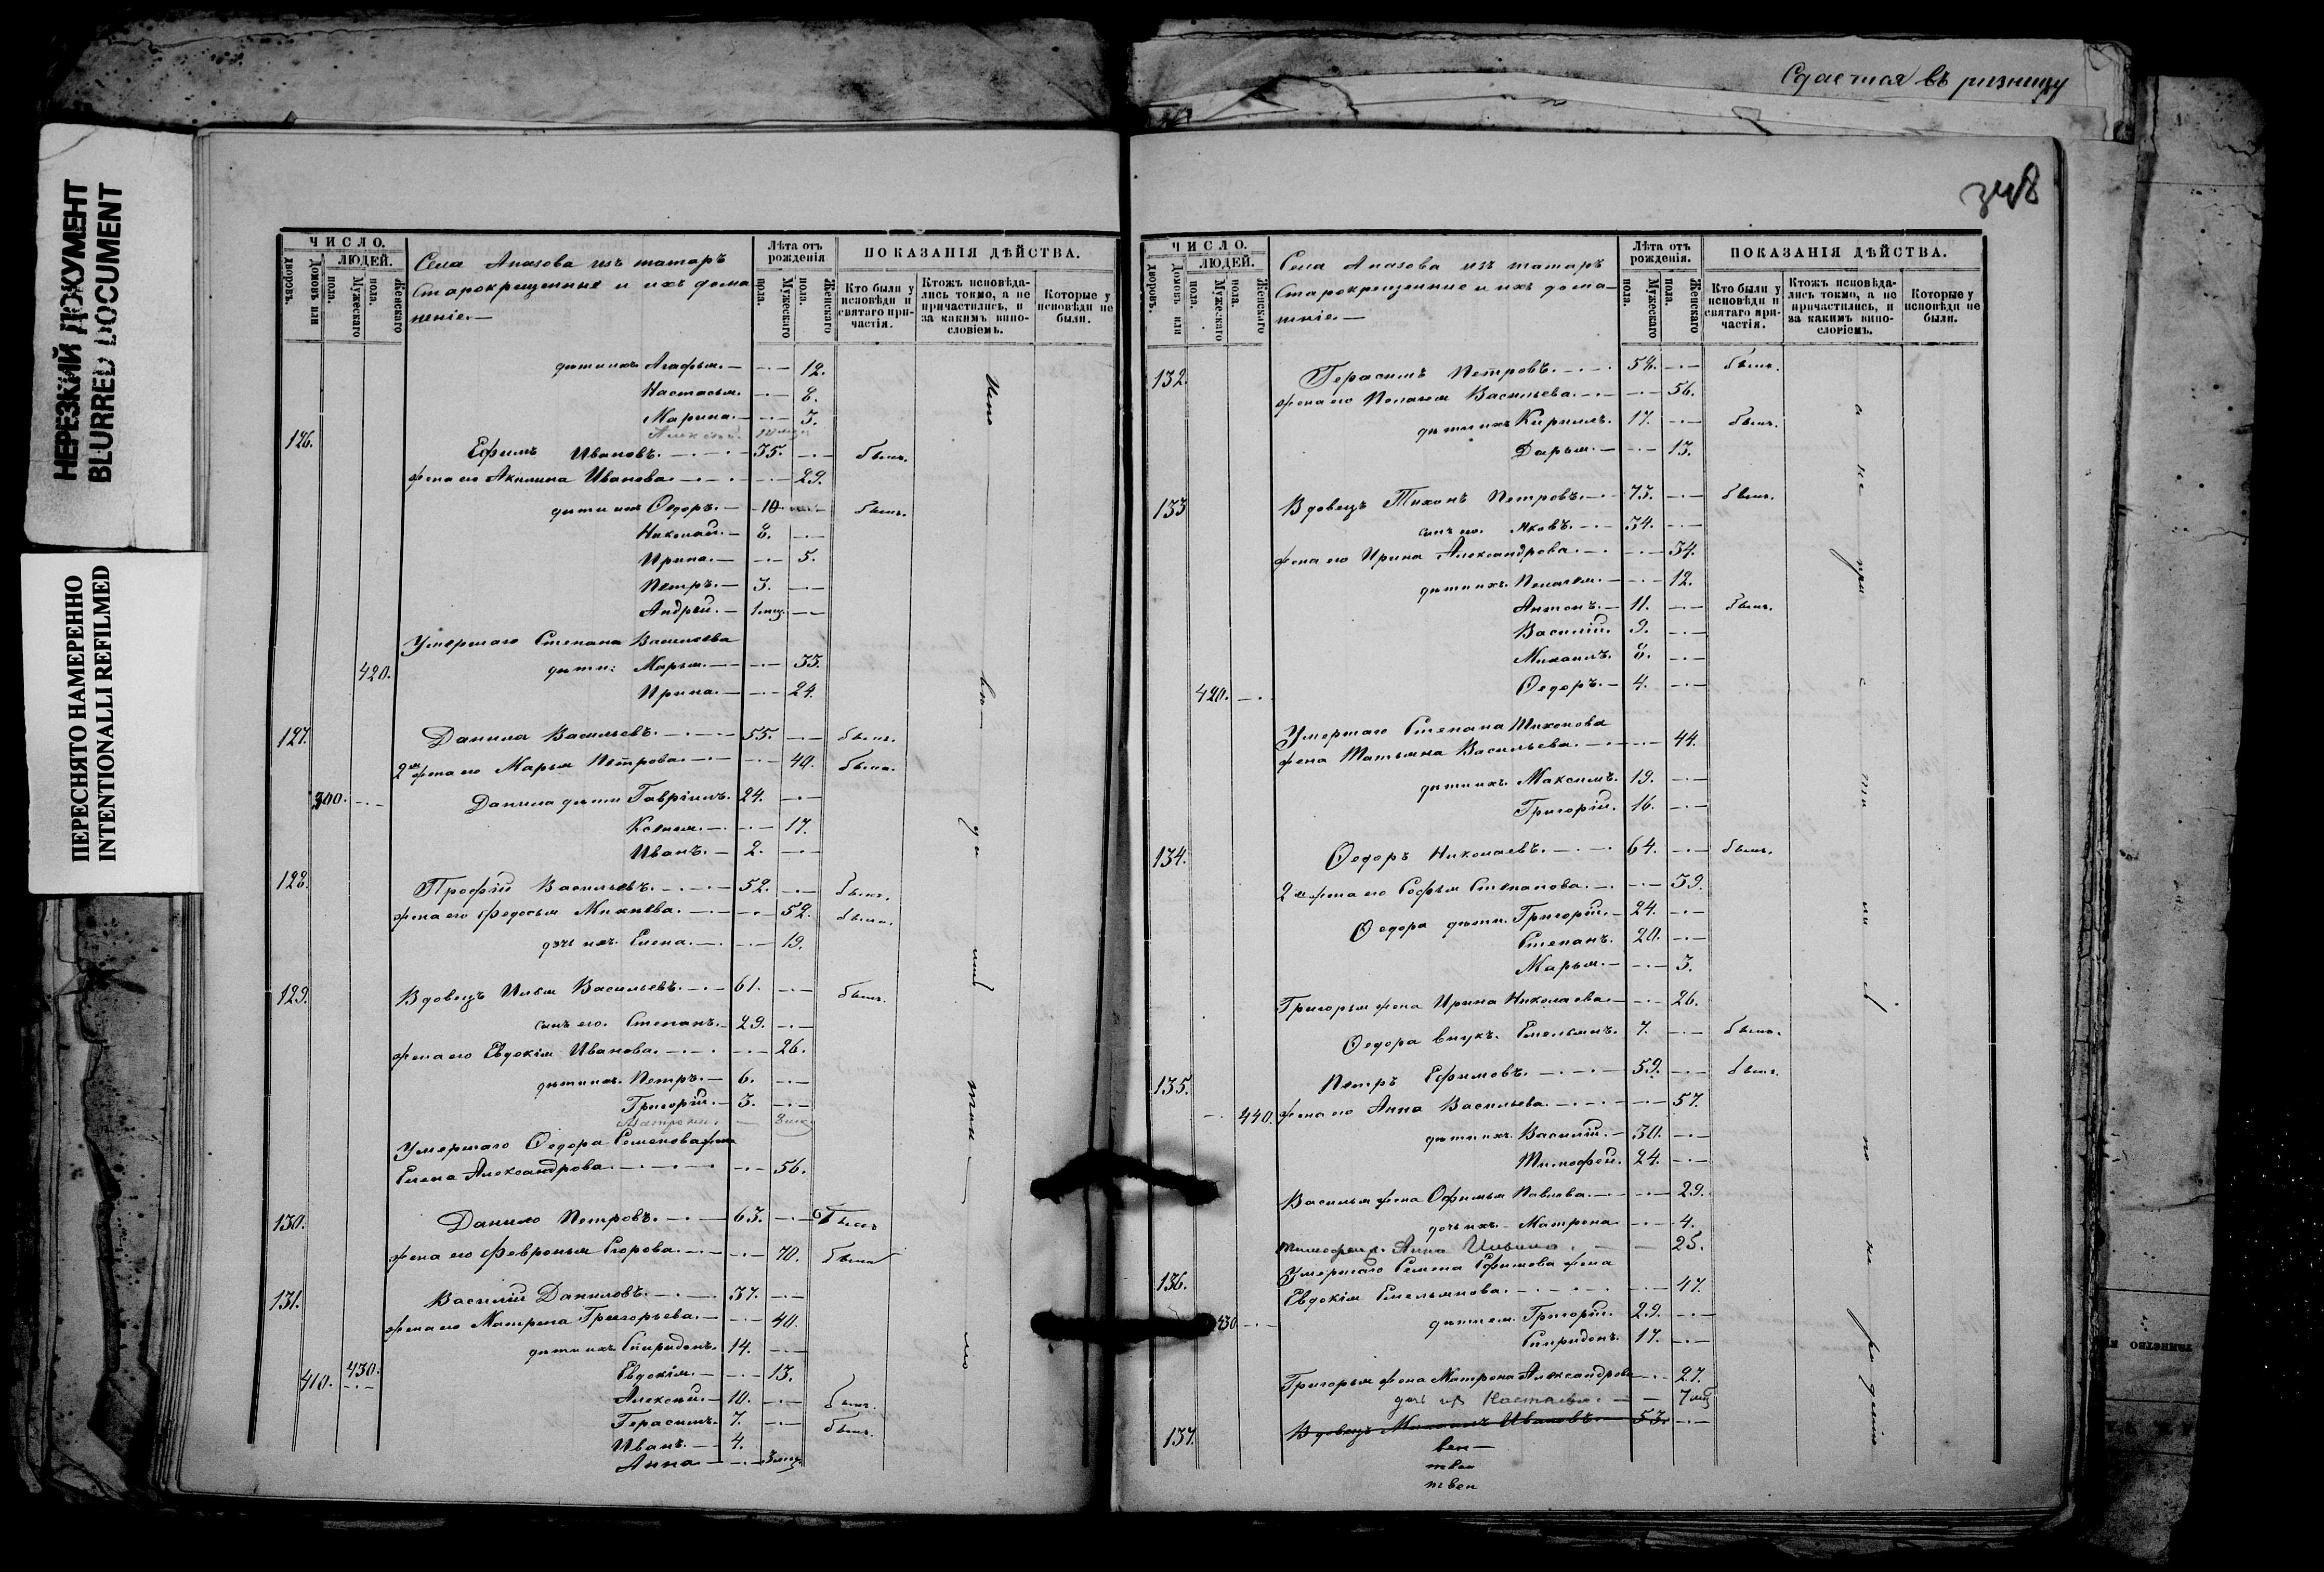 Сдается въ ризницу
НЕРЕЗКИЙ ДОКУМЕНТ
BLURRED DOCUMENT
ПЕРЕСНЯТО НАМЕРЕННО
INTENTIONALLI REFILMED
ЧИСЛО.
ЛЮДЕЙ.
Домовъ или дворовъ.
Мужескаго пола.
Женскаго пола.
Села Апазова изъ татаръ
Старокрещенные и ихъ дома
Лѣта отъ рожденія
Мужескаго пола.
Женскаго пола.
ПОКАЗАНІЯ ДѢЙСТВА.
Кто были у исповѣди и святаго причастія.
Ктожъ исповѣдались токмо, а не причастились, и за какимъ винословіемъ.
Которые у исповѣди не были.
дѣти ихъ Агафья. — 12.
Настасья. — 8.
Марина. — 3.
126.
Ефимъ Ивановъ. — 35. — былъ.
жена его Акилина Иванова. — 29.
дѣти ихъ Ѳедоръ. — 10 — былъ.
Николай. — 8. —
Ирина. — 5.
Петръ. — 3. —
Андрей. — 1 мѣс. —
Умершаго Степана Васильева
420. дѣти: Марья. — 33.
Ирина. — 24.
127. Данила Васильевъ. — 55. — былъ.
2я жена его Марья Петрова. — 40. была.
300. Данила дѣти Гавріилъ. 24. —
Ксенія. — 17.
Иванъ. — 2. —
128. Трофій Васильевъ. — 52. — былъ.
жена его Федосья Михѣева. — 52. была.
дочь ихъ Елена. — 19.
129. Вдовецъ Илья Васильевъ. — 61. — былъ.
сынъ его. Степанъ. — 29. —
жена его Евдокія Иванова. — 26.
дѣти ихъ. Петръ. — 6. —
Григорій. — 3. —
Матрона
Умершаго Ѳедора Семенова жена
Елена Александрова. — 56.
130. Данило Петровъ. — 63. — Былъ
жена его Февронья Егорова. — 70. была
131. Василій Даниловъ. — 37. —
жена его Матрена Григорьева. — 40.
дѣти ихъ Спиридонъ. 14. —
410. 430. Евдокія. — 13.
Алексѣй. — 10. — былъ.
Герасимъ. 7. — былъ.
Иванъ. — 4.
Анна — 3 мѣс.
348
ЧИСЛО.
ЛЮДЕЙ.
Домовъ или дворовъ.
Мужескаго пола.
Женскаго пола.
Села Апазова изъ татаръ
Старокрещенные и ихъ дома
Лѣта отъ рожденія.
Мужескаго пола.
Женскаго пола.
ПОКАЗАНІЯ ДѢЙСТВА.
Кто были у исповѣди и святаго причастія.
Ктожъ исповѣдались токмо, а не причастились, и за какимъ винословіемъ.
Которые у исповѣди не были.
132. Герасимъ Петровъ. — 58. — былъ.
жена его Пелагея Васильева. — 56.
дѣти ихъ Кирилъ. 17. — былъ.
Дарья. — 13.
133 Вдовецъ Тихонъ Петровъ. — 73. — былъ.
сынъ его. Яковъ. — 34. —
жена его Ирина Александрова. — 34.
дѣти ихъ. Пелагея. — 12.
Антонъ. — 11. — былъ.
Василій. 9. —
Михаилъ. 8. —
420. — Ѳедоръ. — 4. —
Умершаго Степана Тихонова
жена Татьяна Васильева. — 44.
дѣти ихъ. Максимъ. 19. —
Григорій. 16. —
134. Ѳедоръ Николаевъ. — 64. — былъ.
2я жена его Софья Степанова. — 39.
Ѳедора дѣти. Григорій. — 24. —
Степанъ. 20. —
Марья. — 3.
Григорья жена Ирина Николаева — 26.
Ѳедора внукъ. Емельянъ. 7. — былъ.
135. Петръ Ефимовъ. — 59. — былъ.
440. жена его Анна Васильева. — 57.
дѣти ихъ. Василій. — 30. —
Тимофей. 24. —
Василья жена Офимья Павлова. — 29.
дочь ихъ. Матрена. — 4.
Тимофея ж. Анна Ильина. — 25.
136. Умершаго Семена Ефимова жена
Евдокія Емельянова. — 47.
430 — дѣти ея. Григорій. 29. —
Спиридонъ. 17. —
Григорья жена Матрона Александрова — 27.
дочь их Настасья. — 7 мѣс
137. Вдовецъ Михаилъ Ивановъ. — 53. —